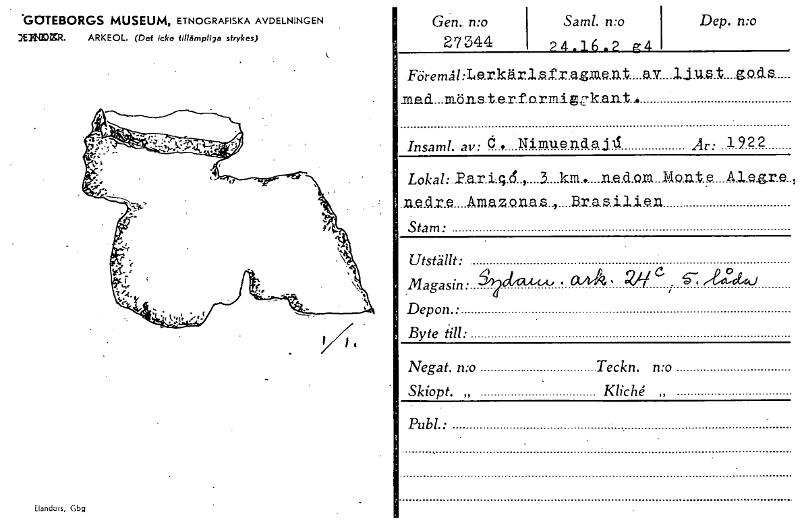 GÖTEBORGS MUSEUM, ETNOGRAFISKA AVDELNINGEN
ARKEOL. (Det icke tillämpliga strykes)
1/1.
Elanders, Gbg
Gen. n:o Saml. n:o Dep. n:o
27344 24.16.2 g4
Föremål: Lerkärlsfragment av ljust gods
med mönsterformig kant.
Insaml. av: C. Nimuendajú År: 1922
Lokal: Pariçó, 3 km. nedom Monte Alegre,
nedre Amazonas, Brasilien
Stam:
Utställt:
Magasin: Sydam. ark. 24c, 5. låda
Depon.:
Byte till:
Negat. n:o Teckn. n:o
Skiopt. „ Kliché „
Publ.: